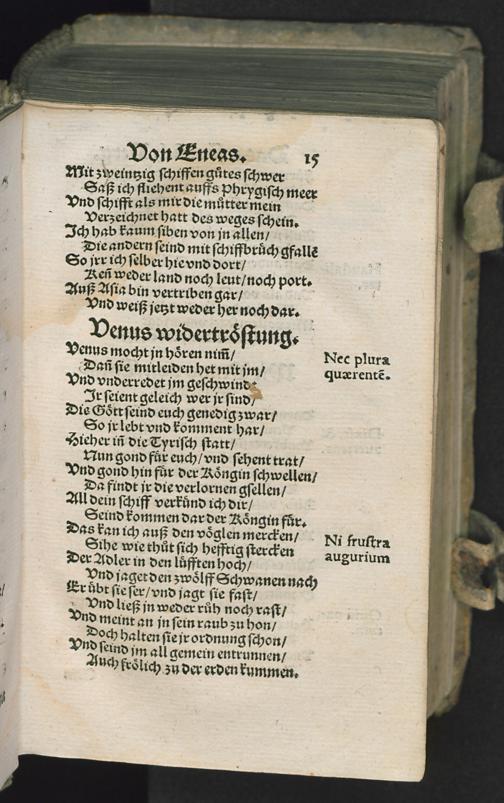 Von Eneas.
15
Mit zweintzig schiffen gůtes schwer
Saß ich fliehent auffs Phrygisch meer
Vnd schifft als mir die můtter mein
Verzeichnet hatt des weges schein.
Jch hab kaum siben von jn allen/
Die andern seind mit schiffbrůch gfallē
So jrr ich selber hie vnd dort/
Keñ weder land noch leut/noch port.
Auß Asia bin vertriben gar/
Vnd weiß jetzt weder her noch dar.
Venus widertröstung.
Venus mocht jn hören nim̃/
Dañ sie mitleiden het mit jm/
Nec plura
quærentē.
Vnd vnderredet jm geschwinde
Jr seient geleich wer jr sind/
Die Gött seind euch genedig zwar/
So jr lebt vnd komment har/
Hieher in die Tyrisch statt/
Nun gond für euch/vnd sehent trat/
Vnd gond hin für der Köngin schwellen/
Da findt jr die verlornen gsellen/
All dein schiff verkünd ich dir/
Seind kommen dar der Köngin für.
Das kan ich auß den vöglen mercken/
Ni frustra
augurium
Sihe wie thůt sich hefftig stercken
Der Adler in den lüfften hoch/
Vnd jaget den zwölff Schwanen nach
Er übt sie ser/vnd jagt sie fast/
Vnd ließ jn weder růh noch rast/
Vnd meint an jn sein raub zu hon/
Doch halten sie jr ordnung schon/
Vnd seind jm all gemein entrunnen/
Auch frölich zu der erden kummen.